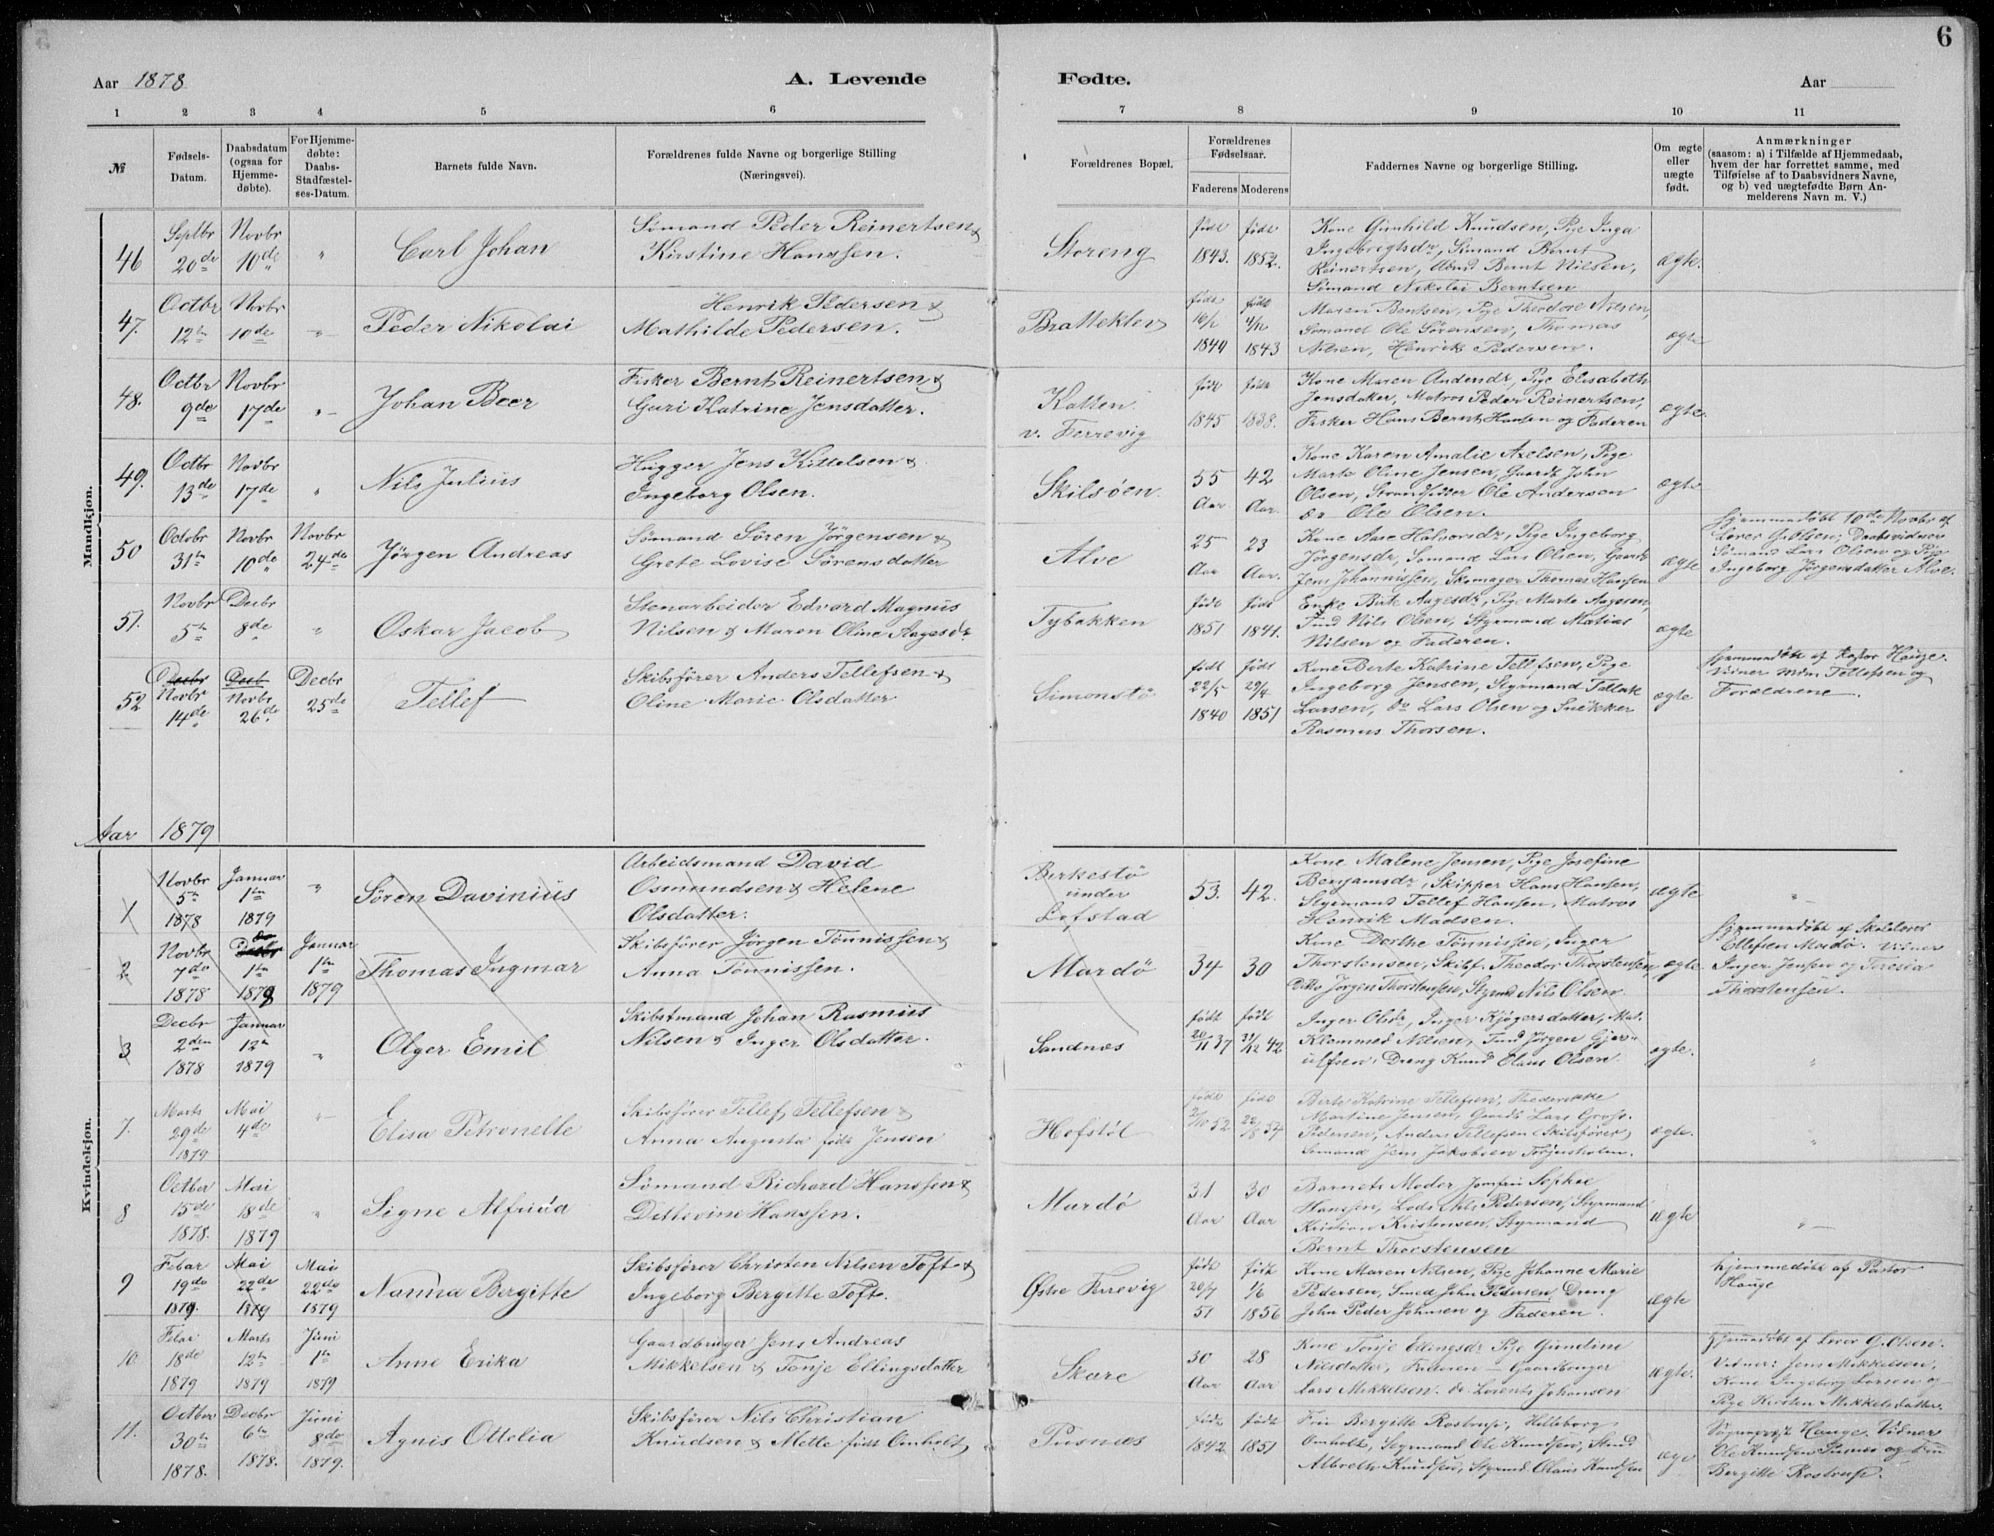 6
Aar 1878
A. Levende
Fødte.
Aar
1 2 3 4 5 6 7 8 9 10 11
№
Fødsels-
Datum.
Daabsdatum
(ogsaa for
Hjemme-
døbte).
For Hjemme-
døbte:
Daabs-
Stadfæstel-
ses-Datum.
Barnets fulde Navn.
Forældrenes fulde Navne og borgerlige Stilling
(Næringsvei).
Forældrenes Bopæl.
Forældrenes
Fødselsaar.
Faderens Moderens
Faddernes Navne og borgerlige Stilling.
Om ægte
eller
uægte
født.
Anmærkninger
(saasom: a) i Tilfælde af Hjemmedaab,
hvem der har forrettet samme, med
Tilføielse af to Daabsvidners Navne,
og b) ved uægtefødte Børn An-
melderens Navn m. V.)
Mandkjøn.
46
Septbr
20de
Novbr
10de
"
Carl Johan
Sømand Peder Reinertsen &
Kirstine Hanssen.
Storeng
født
1843.
født
1852.
Kone Gunhild Knudsen, Pige Inga
Ingebregtsdr, Sømand Bernt
Reinertsen, Bernt Nilsen,
Sømand Nikolai Berntsen
ægte.
47.
Octbr
12te
Novbr
10de
"
Peder Nikolai
Henrik Pedersen &
Mathilde Pedersen.
Bratteklev
født
1844
født
1843
Maren Bentsen, Pige Theodore Nilsen,
Sømand Ole Sørensen, Thomas
Nilsen, Henrik Pedersen.
ægte
48.
Octbr
9de
Novbr
17de
"
Johan Beer
Fisker Bernt Reinertsen &
Guri Katrine Jensdatter.
Katten
v. Ferrevig
født
1845
født
1838.
Kone Maren Andersdr, Pige Elisabeth
Jensdatter, Matros Peder Reinertsen,
Fisker Hans Bernt Hansen og Faderen
ægte.
49.
Octbr
13de
Novbr
17de
"
Nils Julius
Hugger Jens Kittelsen &
Ingeborg Olsen.
Skilsøen.
55
Aar
42
Aar.
Kone Karen Amalie Axelsen, Pige
Marte Oline Jensen, Gaardb John
Olsen, Strandsidder Ole Andersen
Ole Olsen.
ægte
50
Octobr
31te
Novbr
10de
Novbr
24de
Jørgen Andreas
Sømand Søren Jörgensen &
Grete Lovise Sørensdatter
Alve
25
Aar
23
Aar.
Kone Aase Halvorsdr, Pige Ingeborg
Jörgensdr, Sømand Lars Olsen, Gaardb
Jens Johannissen, Skomager Thomas Hansen
ægte
hjemmedøbt 10de Novbr af
Lærer G. Olsen; Daabsvidner
Sømand Lars Olsen og Pige
Ingeborg Jørgensdatter Alve.
51.
Novbr
5te
Decbr
8de
"
Oskar Jacob
Stenarbeider Edvard Magnus
Nilsen & Maren Oline Aagesdr
Tybakken
født
1851
født
1841.
Enke Birte Aagesdr, Pige Marte Aagesen,
Nils Olsen, Styrmand Matias
Nilsen og Faderen.
ægte
52
Decbr
Novbr
14de
Decb
Novbr
26de
Decbr
25de
Tellef
Skibsfører Anders Tellefsen &
Oline Marie Olsdatter
Simonstø
født
22/5
1840
født
29/4
1851
Kone Berte Katrine Tellefsen, Pige
Ingeborg Jensen, Styrmand Tallak
Larsen, do Lars Olsen og Snekker
Rasmus Thorsen.
ægte
hjemmedøbt af Pastor Hauge.
Vidner Mdm Tellefsen og
Forældrene
Aar 1879
1
Novbr
5te
1878
Januar
1te
1879
"
Søren Davinius
Arbeidsmand David
Osmundsen & Helene
Olsdatter.
Birkestø
under
Lofstad
53.
42.
Kone Malene Jensen, Pige Josefine
Benjamsdr, Skipper Hans Hansen,
Styrmand Tellef Hansen, Matros
Henrik Madsen.
ægte
"
2
Novbr
7de
1878
1te
1879
Januar
1te
1879
Thomas Ingmar
Skibsfører Jörgen Tönnissen &
Anna Tønnissen.
Mardö
34
30
Kone Dorthe Tönnissen, Inger
Thorstensen, Skibsf. Theodor Thorstensen,
Ditto Jörgen Thorstensen, Styrmd Nils Olsen
ægte
hjemmedøbt af Skolelærer
Ellefsen Mardø. Vidner
Inger Jensen og Teresia
Thorstensen.
3
Decbr
2den
1878
Januar
12te
1879
"
Olger Emil
Skibstmand Johan Rasmus
Nilsen & Inger Olsdatter.
Sandnæs
født
20/11 37
født
31/12 42
Inger Olsdr, Inger Kjögersdatter, Mat.
Klemmed Nilsen, Jörgen Gjers-
ulfsen, Dreng Knud Elans Olsen
ægte.
"
Kvindekjøn.
7.
Marts
29de
1879
Mai
4de
"
Elisa Petronelle
Skibsfører Tellef Tellefsen &
Anna Augusta født Jensen
Hofstøl
født
2/10 52
født
22/8 57
Birte Katrine Tellefsen, Frederikke
Martine Jensen, Gaardb Lars Gross
Pedersen, Anders Tellefsen Skibsfører,
Sømand Jens Jakobsen Torjusholm.
ægte.
"
8
Octber
15de
1878.
Mai
18de
1879
"
Signe Alfrida
Sømand Richard Hanssen &
Dethevine Hanssen.
Mardö
31
Aar
30
Aar
Barnets Moder Jomfru Sophie
Hanssen, Lods Nils Pedersen, Styrmand
Kristian Kristensen, Styrmand
Bernt Thorstensen
ægte
"
9
Febar
19de
1879.
Mai
22de
1879
Mai
22de
1879
Nanna Bergitte
Skibsfører Christen Nilsen Toft &
Ingeborg Bergitte Toft.
Østre Ferrevig
født
20/7
51
født
1/6
1856
Kone Maren Nilsen, Pige Johanne Marie
Pedersen, Smed John Pedersen, Dreng
John Peder Johnsen og Faderen.
ægte
hjemmedøbt af Pastor
Hauge
10.
Febar
18de
1879
Marts
12te
1879
Juni
1te
1879
Anne Erika
Gaardbruger Jens Andreas
Mikkelsen & Tonje Ellingsdatter
Skare
30
Aar
28
Aar
Kone Tonje Ellingsdr Pige Gundine
Nilsdatter, Faderen — Gaardbruger
Lars Mikkelsen. do. Lorents Johansen
ægte.
hjemmedøbt af Lærer G. Olsen.
Vidner: Jens Mikkelsen,
Kone Ingeborg Larsen og
Pige Kirsten Mikkelsdatter.
11.
Octber
30te
1878.
Decbr
6te
1878.
Juni
8de
1879.
Agnis Ottelia
Skibsfører Nils Christian
Knudsen & Mette født Omholt
Pusnæs
født
1842
født
1851
Fru Bergitte Rostrup, Hilleborg
Omholt, Styrmand Ole Knudsen, Stud
Albreth Knudsen, Styrmd Claus Knudsen
ægte
Sognepræst Hauge. Vidner
Ole Knudsen Pusnæs og Fru
Bergitte Rostrup.